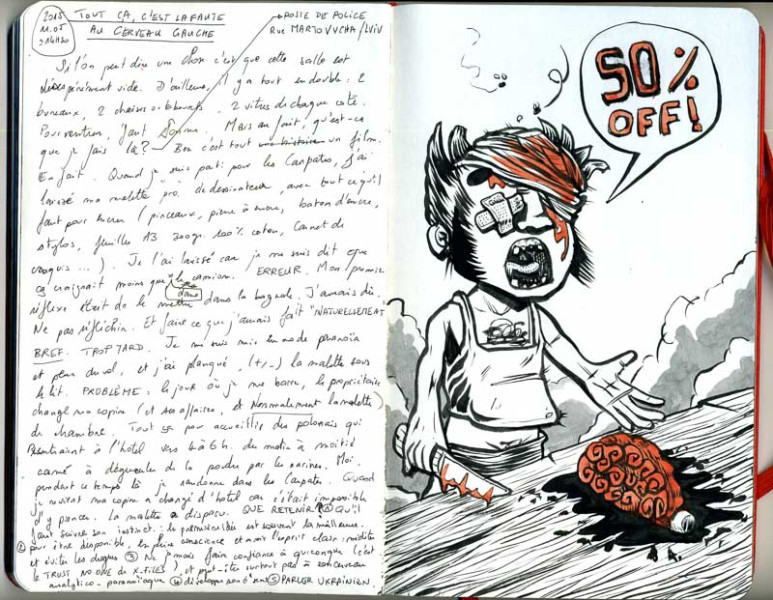 2015
11.05
±14H20
TOUT ÇA, C'EST LA FAUTE
AU CERVEAU GAUCHE
POSTE DE POLICE
RUE MARTOVYCHA/LVIV
Si l'on peut dire une chose c'est que cette salle est
désespérément vide. D'ailleurs, il y a tout en double : 2
bureaux, 2 chaises, 2 vitres de chaque côté.
Mais au fait, qu'est-ce
que je fais là? Bon c'est tout un film.
En fait. Quand je suis parti pour les Carpates, j'ai
laissé ma malette pro. de dessinateur, avec tout ce qu'il
faut pour encrer (pinceaux, pierre à encre, baton d'encre,
stylos, feuilles A3 300gr. 100% coton, carnet de
croquis ...). Je l'ai laissé car je me suis dit que
ça craignait moins que le camion. ERREUR. Mon premier
réflexe était de le mettre dans la bagnole. J'aurais dû
Ne pas réfléchir. Et faire ce que j'aurais fait "NATURELLEMENT"
BREF. TROP TARD. Je me suis mis en mode paranoïa
et plan du vol, et j'ai planqué (+/-) la malette sous
le lit. PROBLÈME : le jour où je me barre, le propriétaire
change ma copine (et ses affaires, et Normalement la malette)
de chambre. Tout ça pour accueillir des polonais qui
à l'hôtel vers 4 à 6h. du matin à moitié
à dégueuler de la poudre par les narines. Moi
pendant ce temps là je randonne dans les Carpates. Quand
je reviens ma copine a changé d'hôtel car c'était impossible
d'y pioncer. La malette a disparu. QUE RETENIR? ① Qu'il
faut suivre son instinct : la première idée est souvent la meilleure.
② pour être disponible, en pleine conscience et avoir l'esprit clair : méditer
et éviter les drogues ③ Ne jamais faire confiance à quiconque (c'est
le TRUST NO ONE de X-FILES) et peut-être surtout pas à son cerveau
analytico-paranoïaque ④ ⑤ PARLER UKRAINIEN.
50%
OFF!